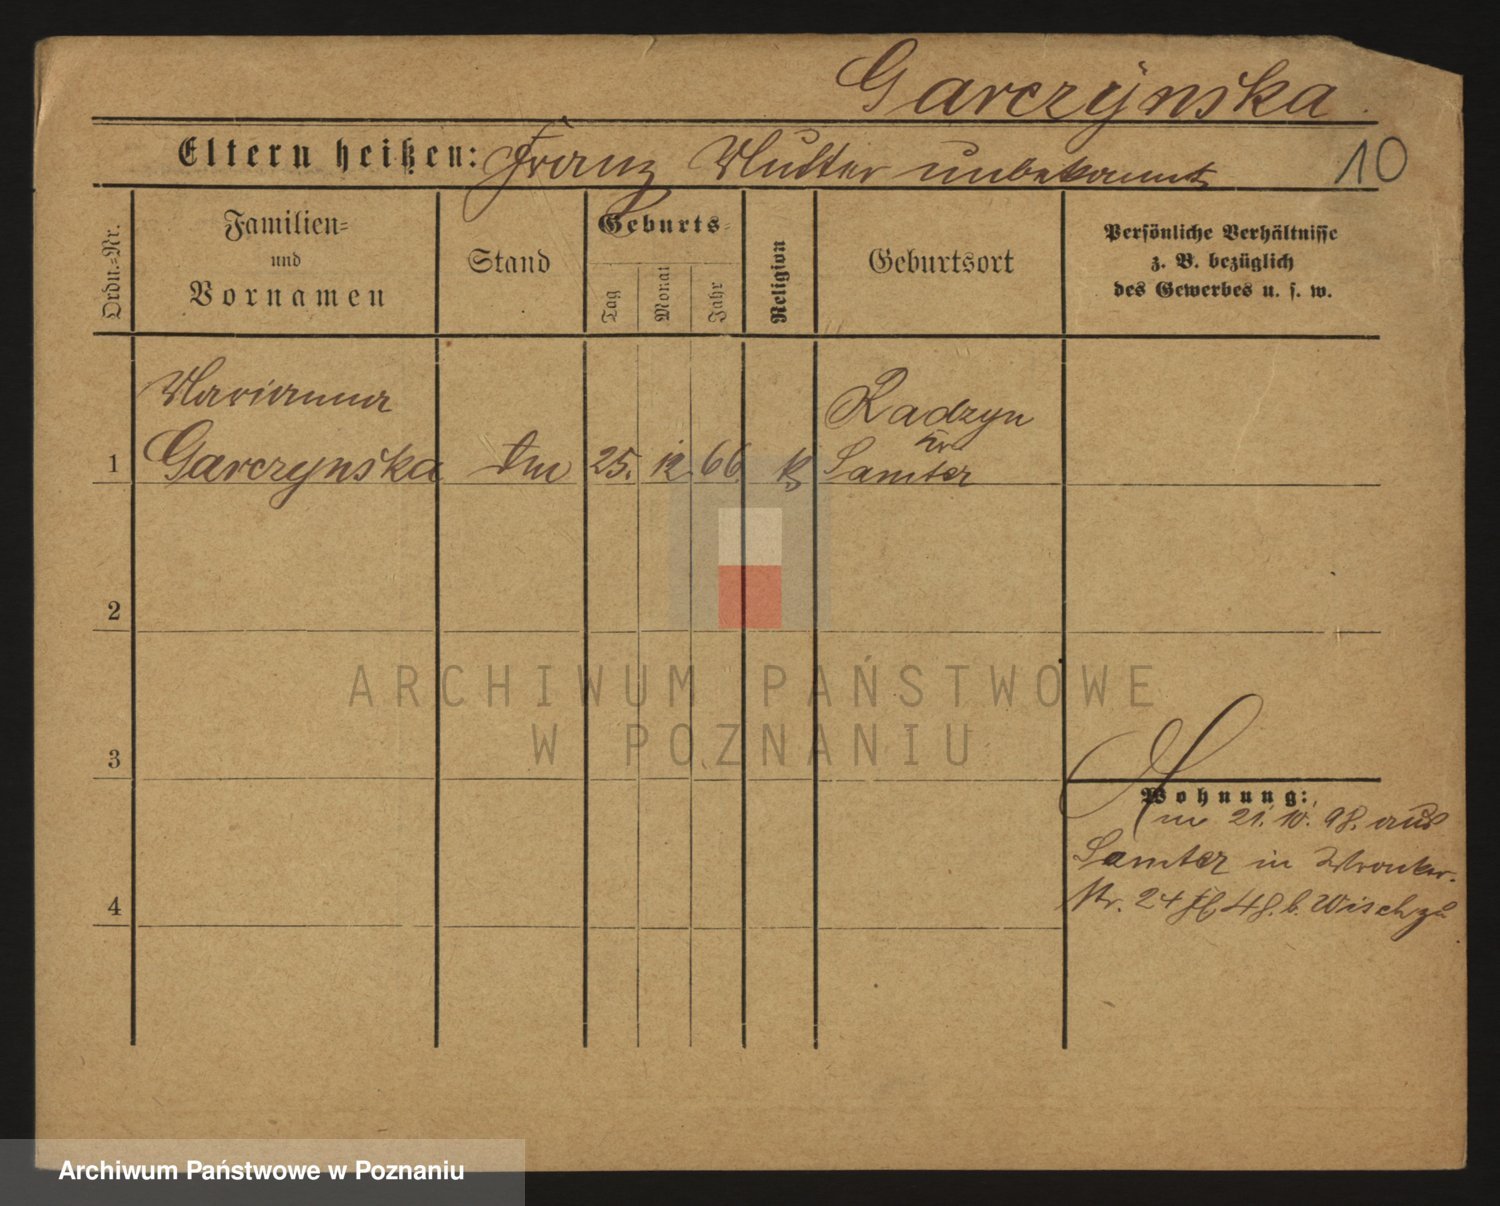 Garczynska
10
Eltern heißen: Franz Mutter unbekannt
Ordn.-Nr.
Familien-
und
Vornamen
Stand
Geburts-
Tag
Monat
Jahr
Religion
Geburtsort
Persönliche Verhältnisse
z. B. bezüglich
des Gewerbes u. s. w.
Marianna
Radzyn
Kr
1 Garczynska 25. 12 66 k Samter
2
ARCHIWUM PAŃSTWOWE
W POZNANIU
3
Wohnung:
21. 10. 98. aus
Samter in Wronker-
Str. 24 b. Wisch
4
Archiwum Państwowe w Poznaniu